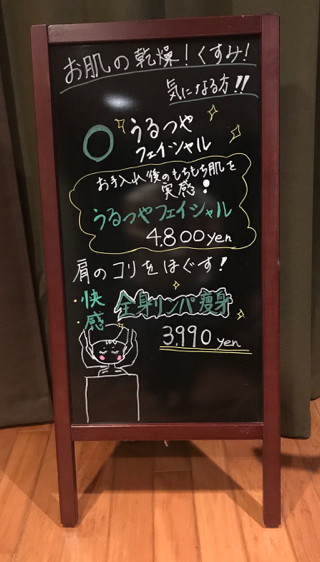 お肌の乾燥！くすみ！
気になる方!!
うるつや
フェイシャル
お手入れ後のもちもち肌を
実感！
うるつやフェイシャル
4.800yen
肩のコリをほぐす！
快感
全身リンパ痩身
3,990yen